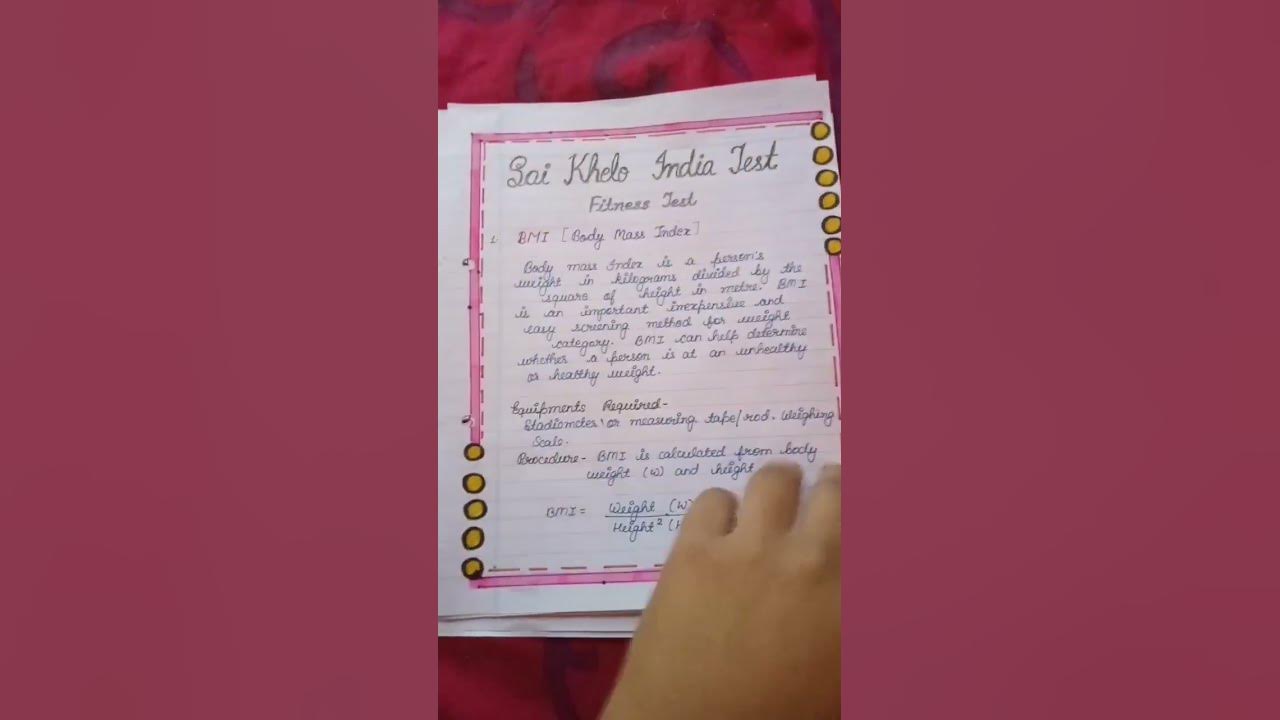 Sai Khelo India Test
Fitness Test
1. BMI [Body Mass Index]
Body mass Index is a person's
weight in kilograms divided by the
square of height in metre. BMI
is an important inexpensive and
easy screening method for weight
category. BMI can help determine
whether a person is at an unhealthy
or healthy weight.
Equipments Required-
Stadiometer or measuring tape/rod. Weighing
Scale.
Procedure- BMI is calculated from body
weight (W) and height
BMI = Weight (W)
Height² (H